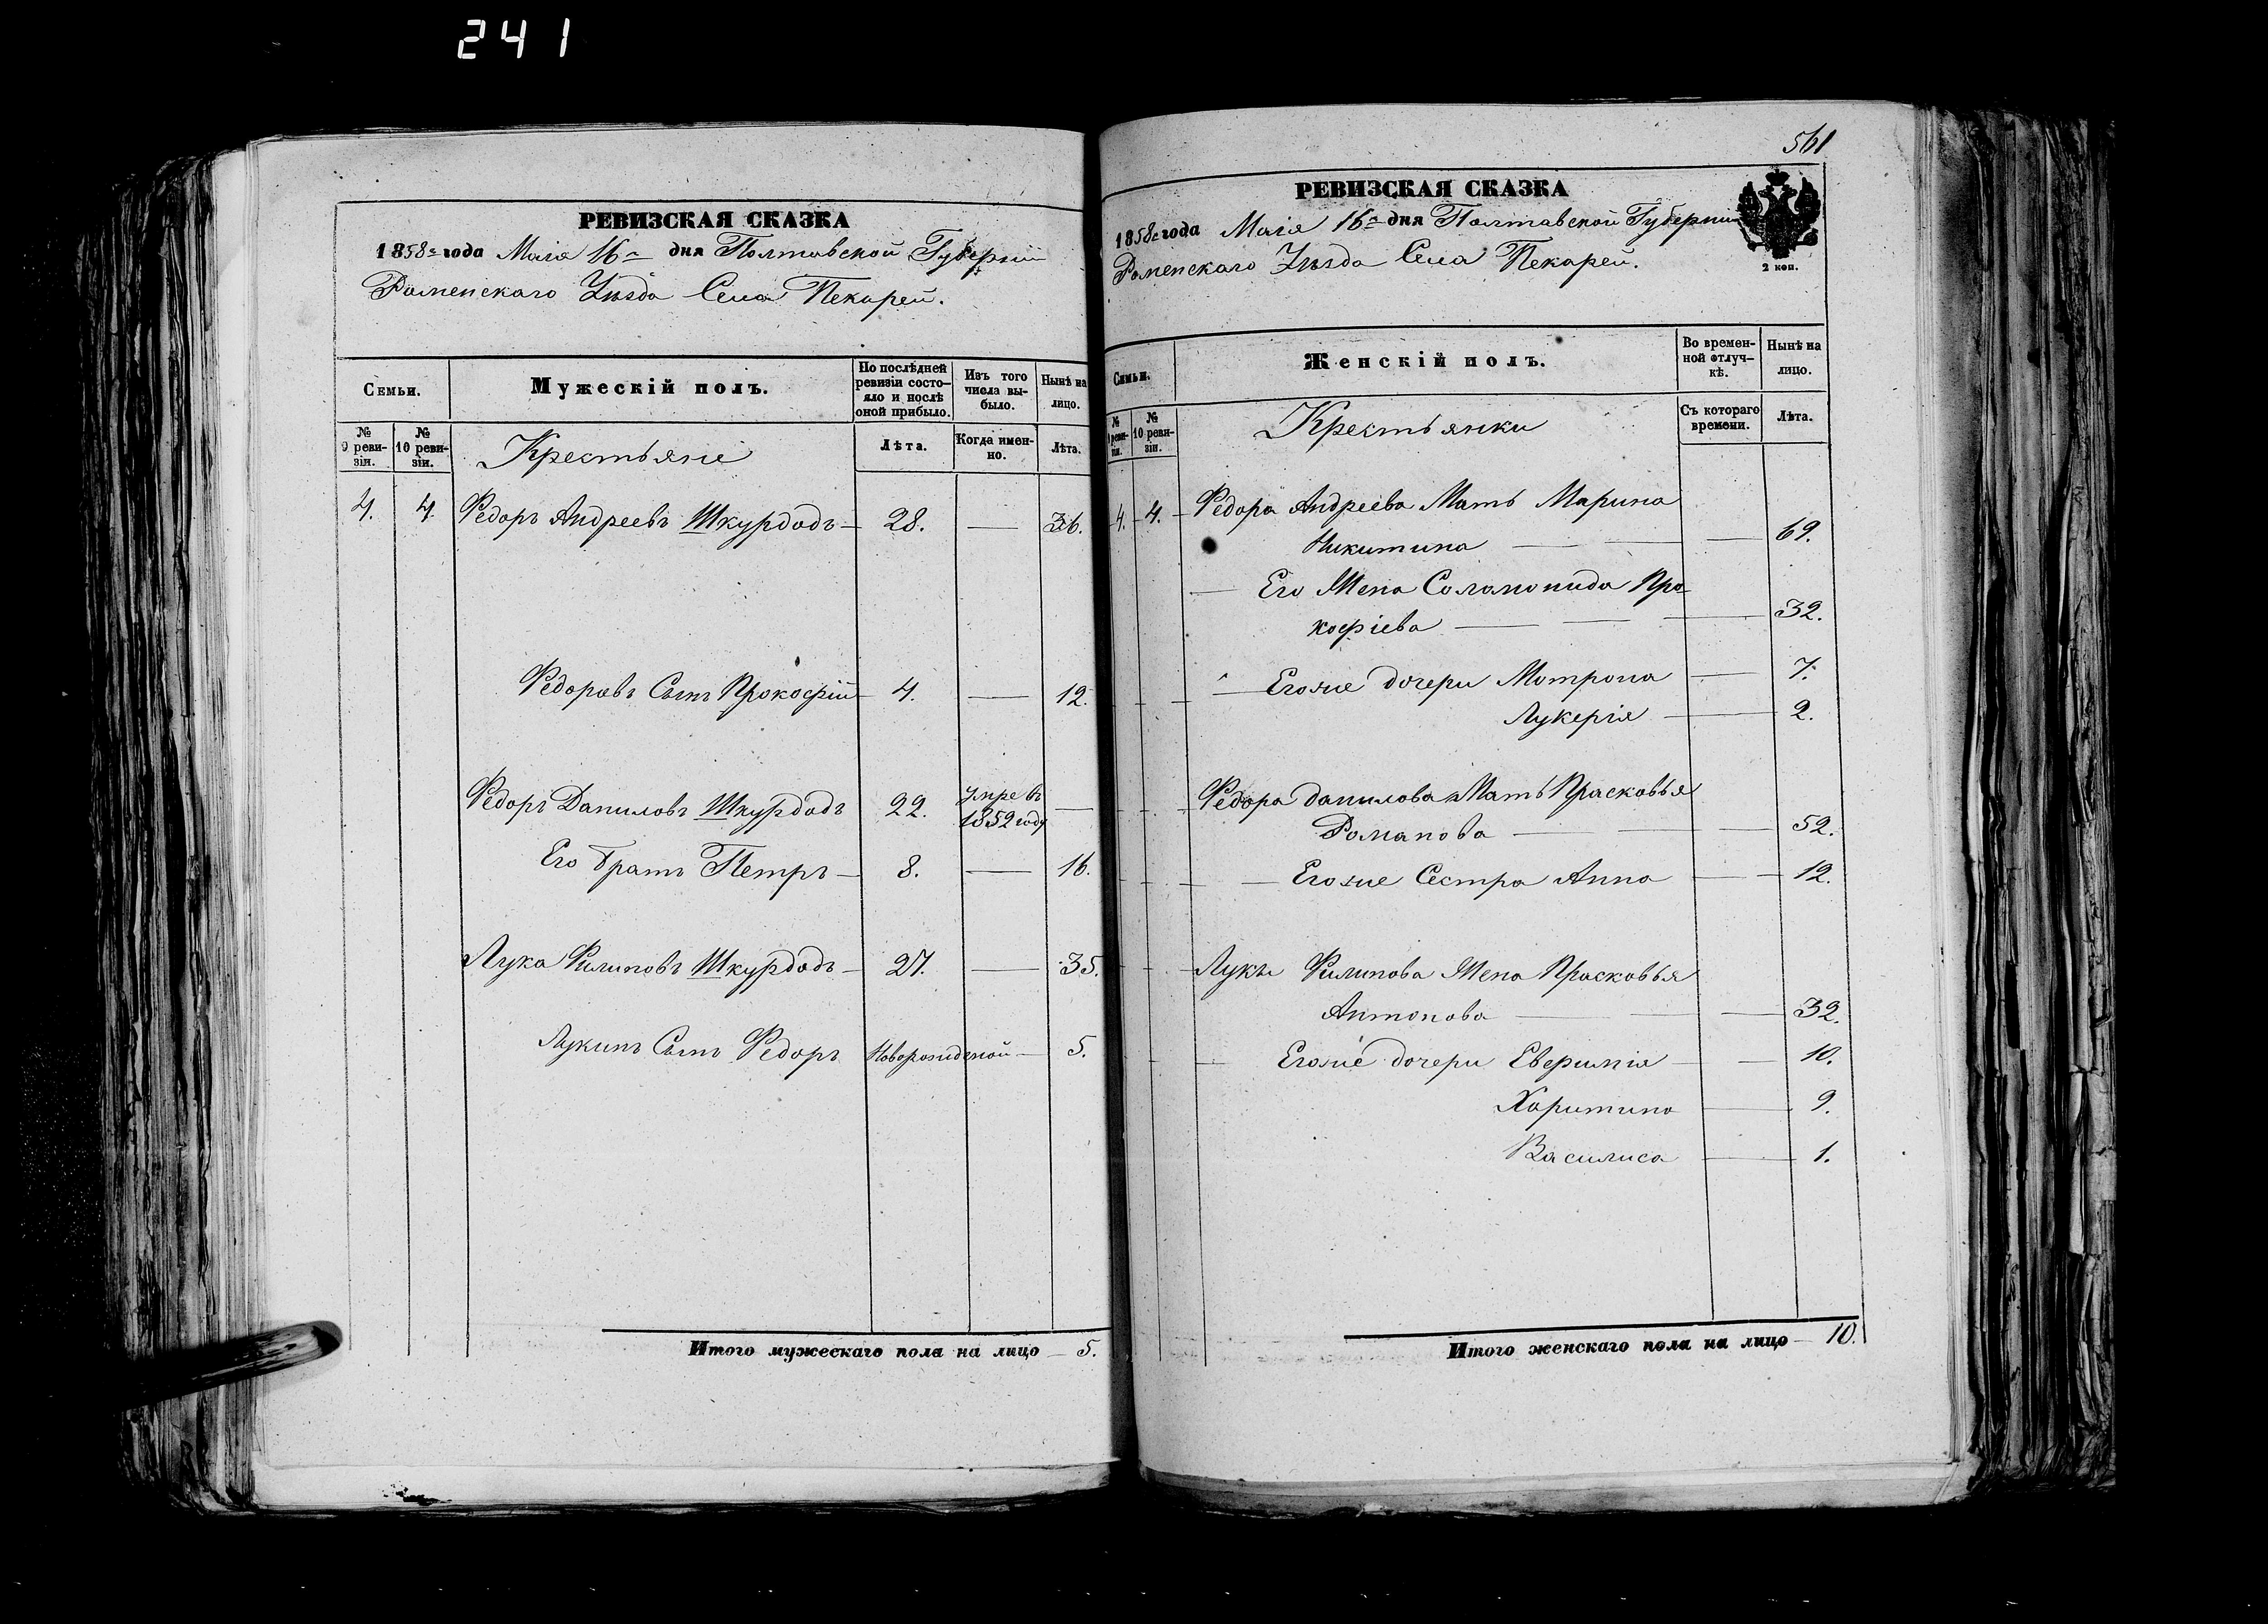 241
РЕВИЗСКАЯ СКАЗКА
1858го года Маія 16го дня Полтавской Губерніи
Роменскаго Уѣзда Села Пекарей.
Семьи.
Мужескій полъ.
По послѣдней ревизіи состо-
яло и послѣ
оной прибыло.
Изъ того
числа вы-
было.
Нынѣ на
лицо.
№
9 реви-
зіи.
№
10 реви-
зіи.
Крестьяне
Лѣта.
Когда имен-
но.
Лѣта.
4. 4. Федоръ Андреевъ Шкурдодъ — 28. — 36.
Федоровъ Сынъ Прокофій 4. — 12.
Федоръ Даниловъ Шкурдодъ 22. умре въ 1852 году —
Его братъ Петръ — 8. — 16.
Лука Филиповъ Шкурдодъ — 27. — 35.
Лукинъ Сынъ Федоръ Новорожденой — 5.
Итого мужескаго пола на лицо — 5.
561
РЕВИЗСКАЯ СКАЗКА
1858го года Маія 16го дня Полтавской Губерніи
Роменскаго Уѣзда Села Пекарей.
2 коп.
Семьи.
Женскій полъ.
Во времен-
ной отлуч-
кѣ.
Нынѣ на
лицо.
№
9 реви-
зіи.
№
10 реви-
зіи.
Крестьянки
Съ котораго
времени.
Лѣта.
4. 4. Федора Андреева Мать Марина
Никитина — — 69.
Его Жена Соломонида Про
кофіева — — 32.
Егоже дочери Мотрона — 7.
Лукерія — 2.
Федора Данилова Мать Прасковья
Романова — — 52.
Егоже Сестра Анна — 12.
Луки Филипова Жена Прасковья
Антонова — — 32.
Егоже дочери Евфимія — 10.
Харитина — 9.
Василиса — 1.
Итого женскаго пола на лицо — 10.